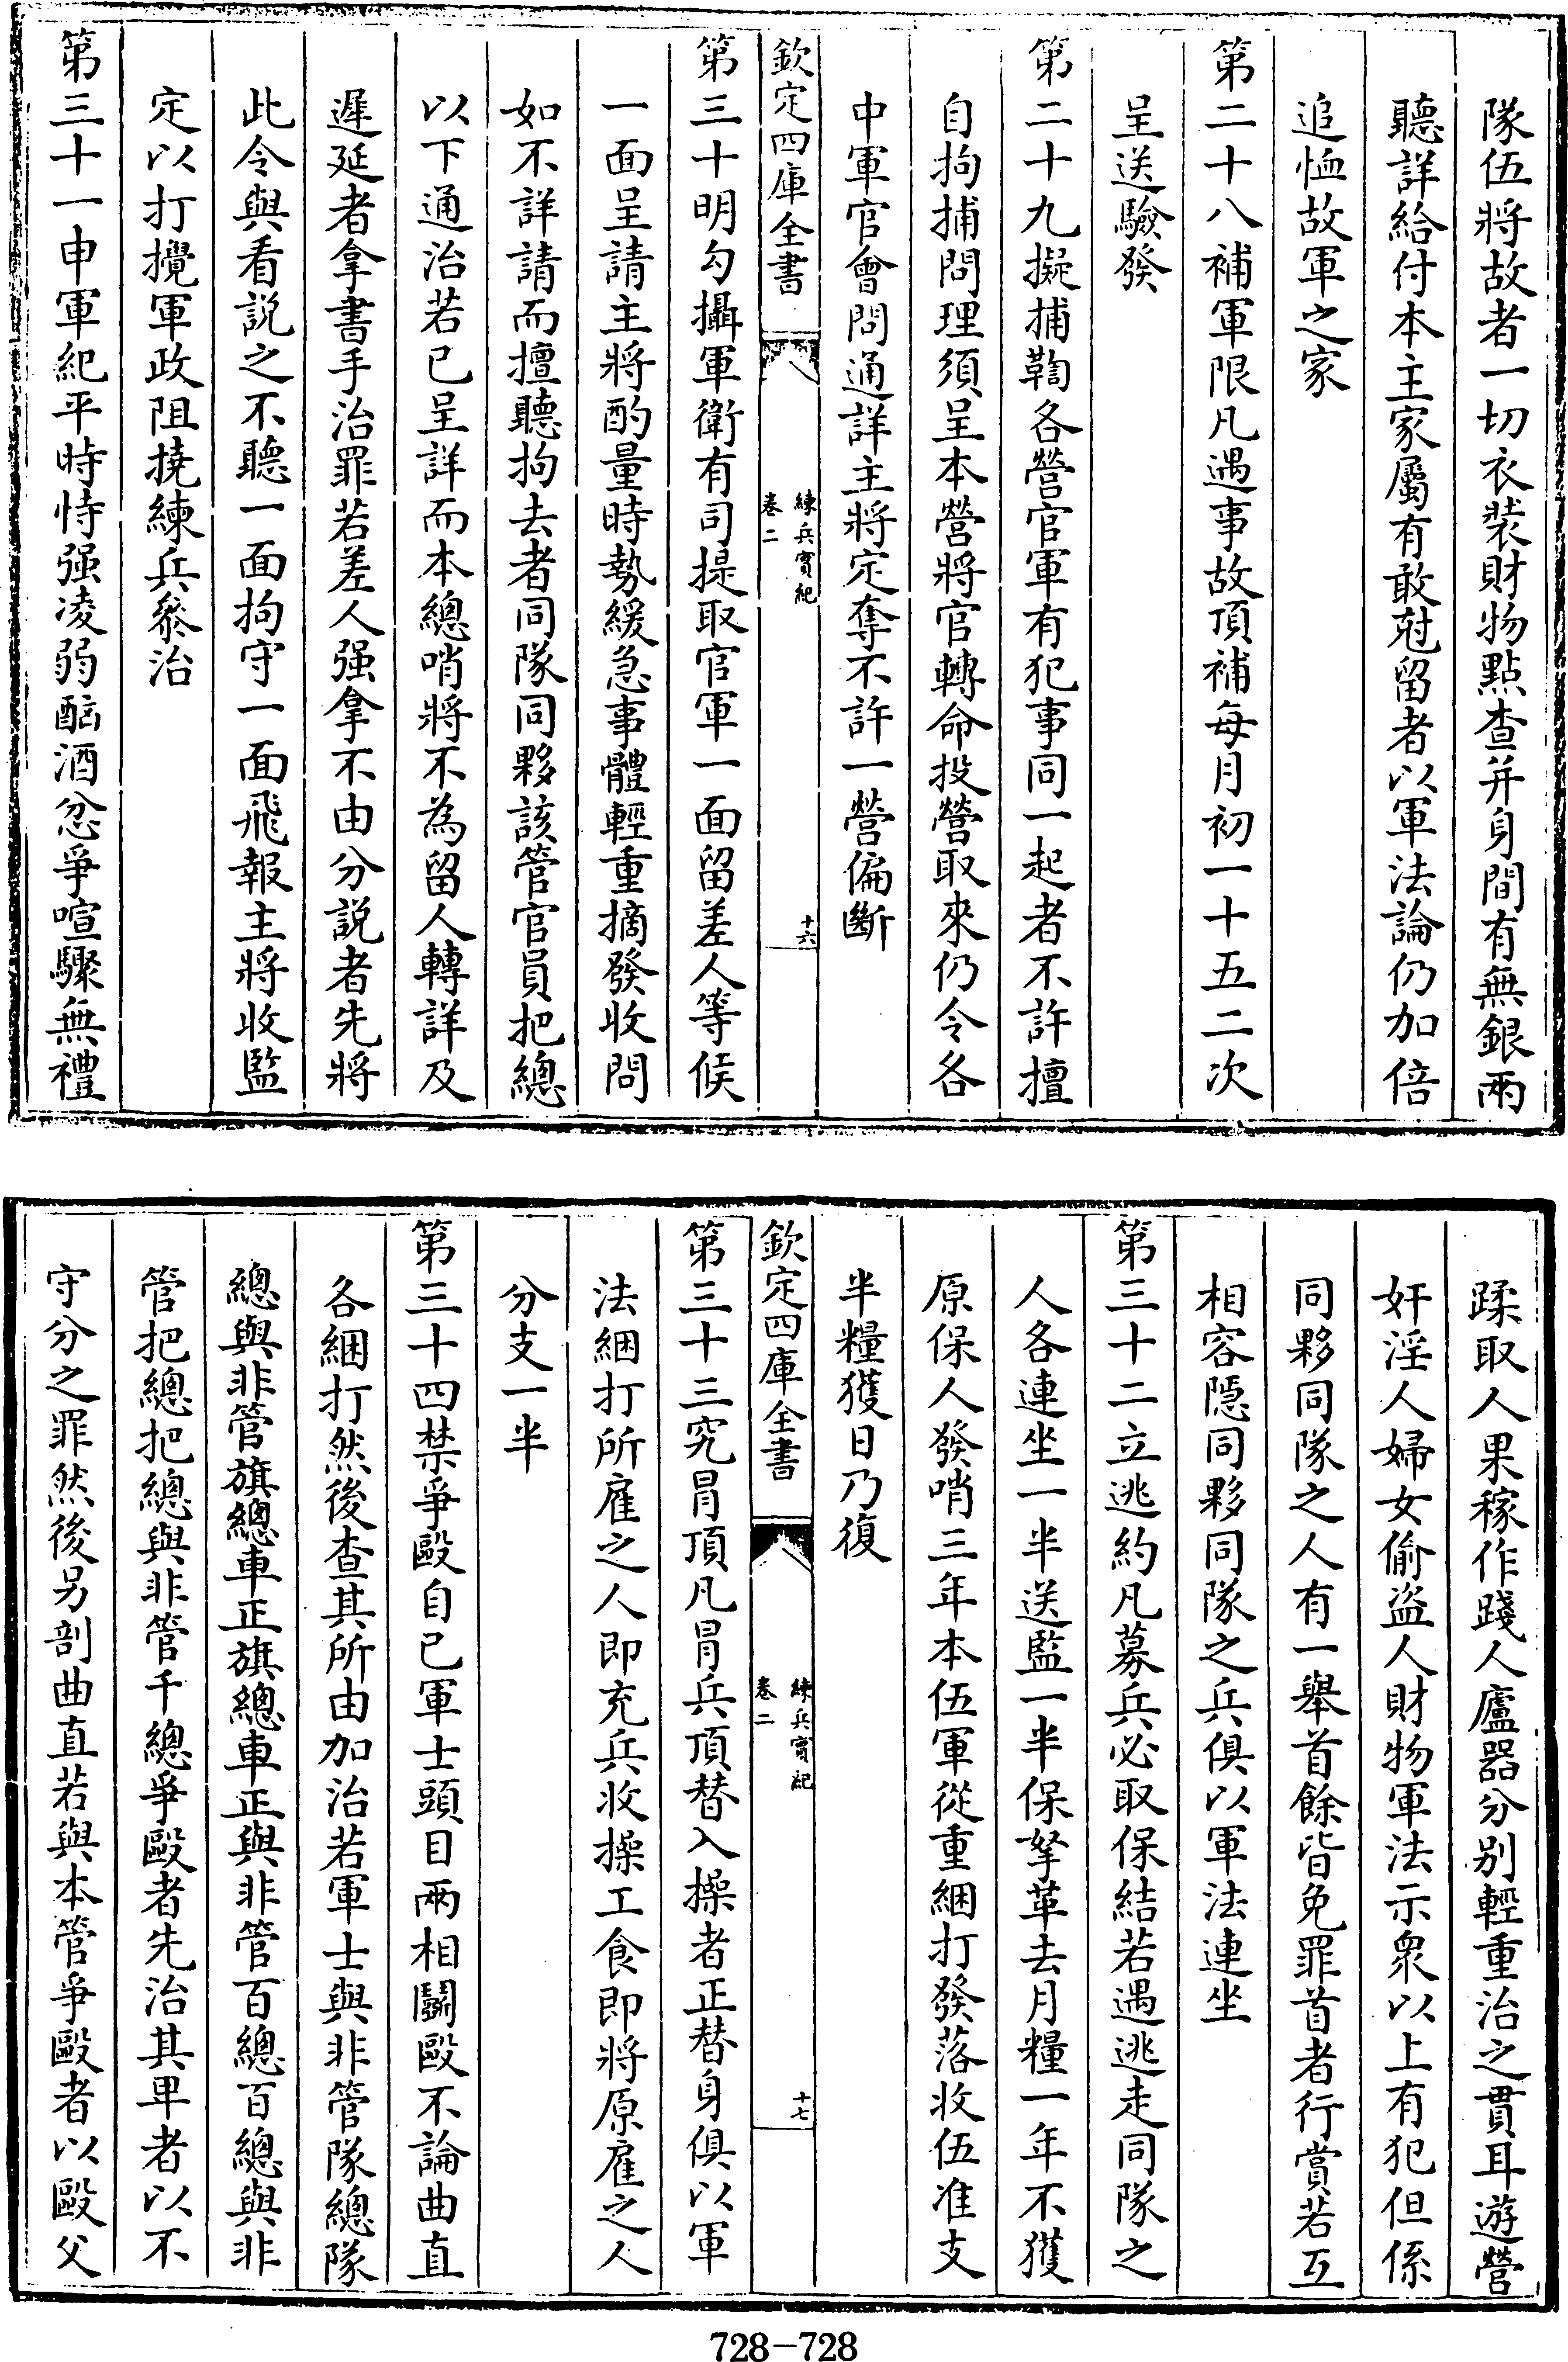 隊伍將故者一切衣裝財物點查并身間有無銀兩
聽詳給付本主家屬有敢尅留者以軍法論仍加倍
追恤故軍之家
第二十八補軍限凡遇事故頂補每月初一十五二次
呈送驗發
第二十九擬捕鞫各營官軍有犯事同一起者不許擅
自拘捕問理須呈本營將官轉命投營取來仍令各
中軍官會問通詳主將定奪不許一營偏斷
欽定四庫全書
練兵實紀
卷二
十六
第三十明勾攝軍衛有司提取官軍一面留差人等候
一面呈請主將酌量時勢緩急事體輕重摘發收問
如不詳請而擅聽拘去者同隊同夥該管官員把總
以下通治若已呈詳而本總哨將不為留人轉詳及
遲延者拿書手治罪若差人强拿不由分説者先將
此令與看説之不聽一面拘守一面飛報主將收監
定以打攪軍政阻撓練兵叅治
第三十一申軍紀平時恃强凌弱酗酒忿爭喧驟無禮
蹂取人果稼作踐人廬器分别輕重治之貫耳遊營
奸淫人婦女偷盜人財物軍法示衆以上有犯但係
同夥同隊之人有一舉首餘皆免罪首者行賞若互
相容隱同夥同隊之兵俱以軍法連坐
第三十二立逃約凡募兵必取保結若遇逃走同隊之
人各連坐一半送監一半保拏革去月糧一年不獲
原保人發哨三年本伍軍從重綑打發落收伍准支
半糧獲日乃復
欽定四庫全書
練兵實紀
卷二
十七
第三十三究冐頂凡冐兵頂替入操者正替身俱以軍
法綑打所雇之人即充兵收操工食即將原雇之人
分支一半
第三十四禁爭毆自已軍士頭目兩相鬭毆不論曲直
各綑打然後查其所由加治若軍士與非管隊總隊
總與非管旗總車正旗總車正與非管百總百總與非
管把總把總與非管千總爭毆者先治其卑者以不
守分之罪然後另剖曲直若與本管爭毆者以毆父
728-728